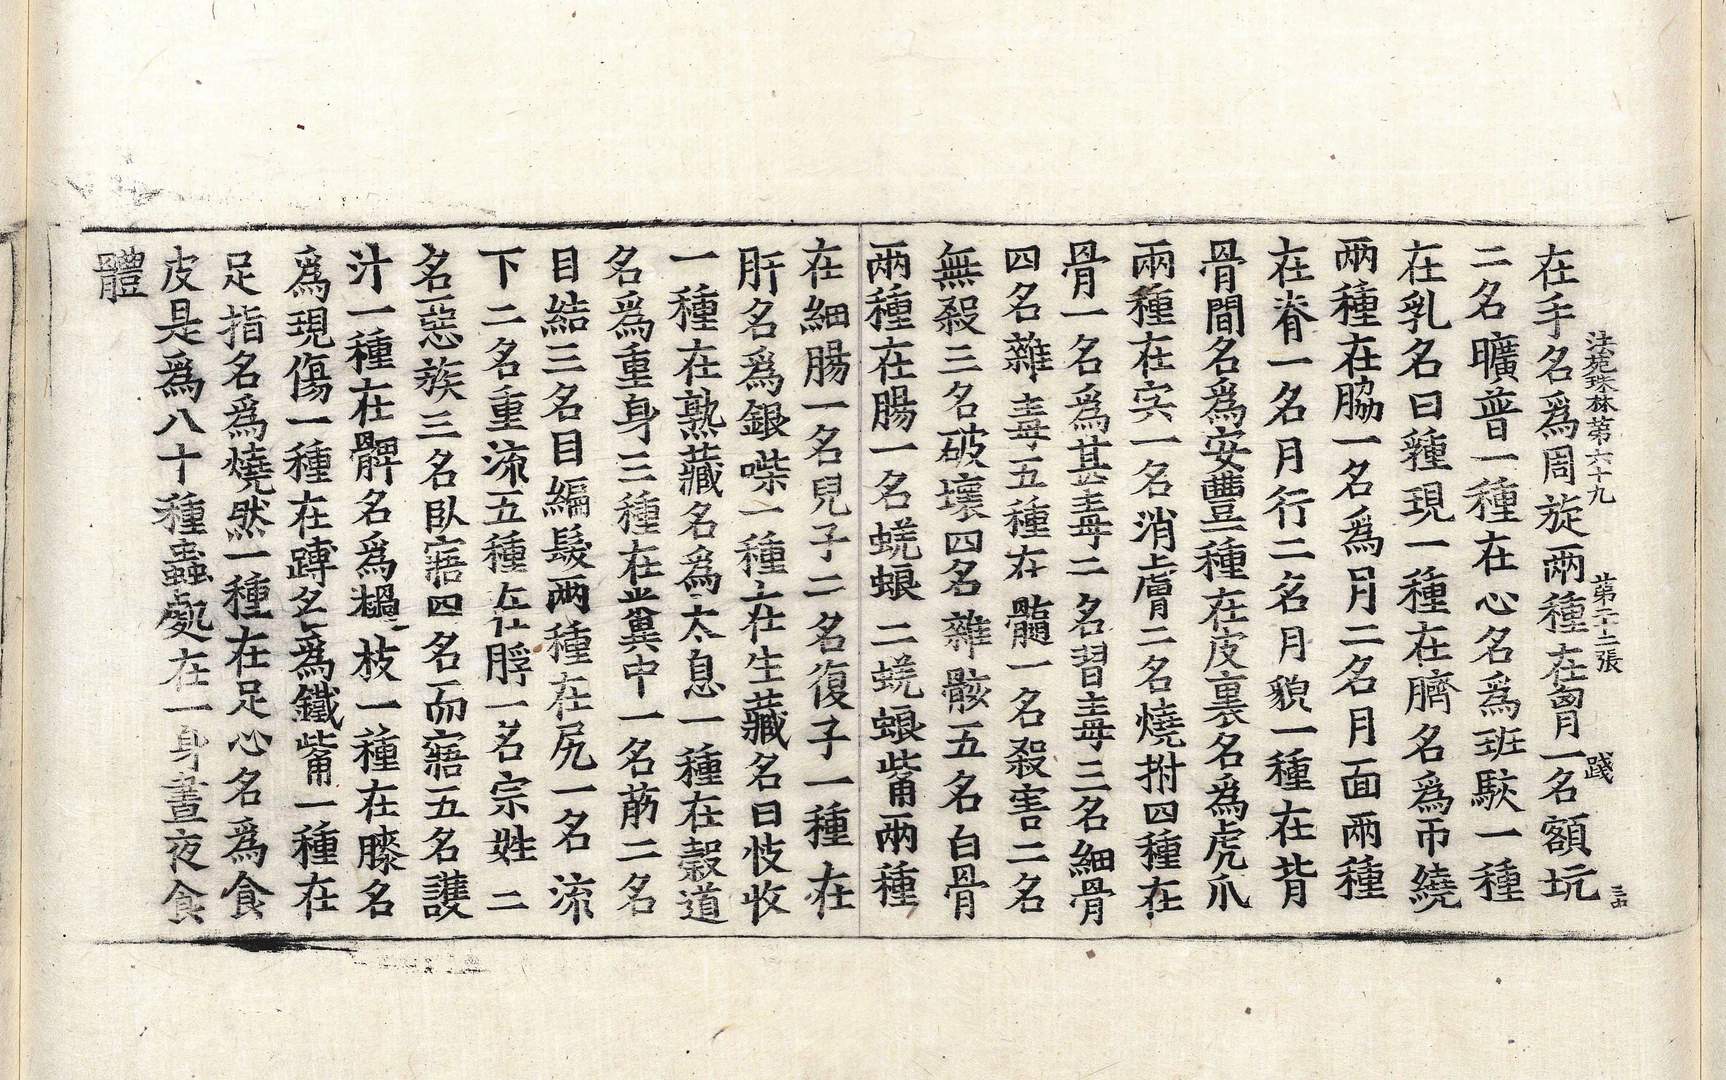 法苑珠林第六十九 第二十二張 踐
在手名爲周旋兩種在胷一名額坃
二名曠普一種在心名爲班駁一種
在乳名曰種現一種在臍名爲帀繞
兩種在脇一名爲月二名月面兩種
在脊一名月行二名月貌一種在背
骨間名爲安豊一種在皮裏名爲虎爪
兩種在宍一名消膚二名燒拊四種在
骨一名爲甚毒二名習毒三名細骨
四名雜毒五種在髓一名殺害二名
無殺三名破壞四名雜骸五名白骨
兩種在腸一名蜣蜋二蜣蜋觜兩種
在細腸一名兒子二名復子一種在
肝名爲銀喋一種在生藏名曰忮收
一種在熟藏名爲太息一種在穀道
名爲重身三種在糞中一名莇二名
目結三名目編髮兩種在尻一名流
下二名重流五種在脬一名宗姓二
名惡族三名臥寤四名而寤五名護
汁一種在髀名爲檛枝一種在膝名
爲現傷一種在䠙名爲鐵觜一種在
足指名爲燒然一種在足心名爲食
皮是爲八十種蟲處在一身晝夜食
體